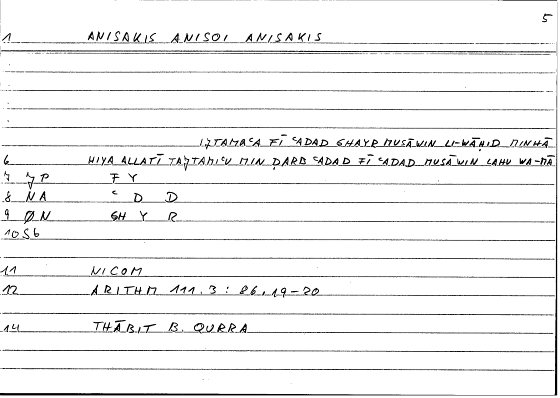 5
1 ANISAKIS ANISOI ANISAKIS
IǦTAMAʿA FĪ ʿADAD GHAYR MUSĀWIN LI-WĀḤID MINHĀ
6 HIYA ALLATĪ TAǦTAMIʿU MIN ḌARB ʿADAD FĪ ʿADAD MUSĀWIN LAHU WA-MĀ
7 JP F Y
8 NA ʿ D D
9 ØN GH Y R
10 56
11 NICOM
12 ARITHM 111.3 : 86,19-20
14 THĀBIT B. QURRA